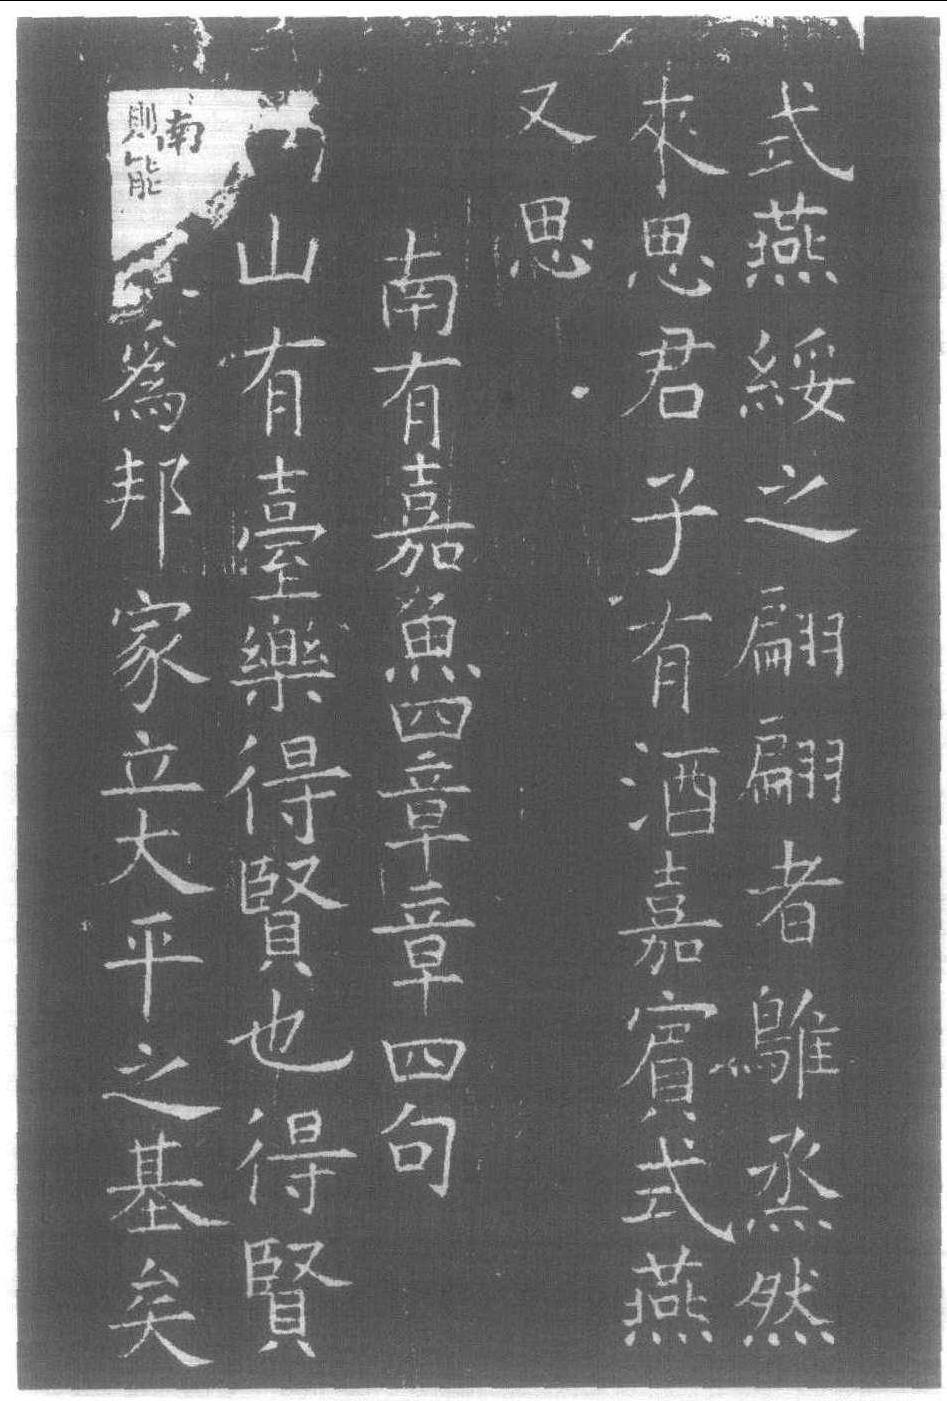 式燕綏之翩翩者鵻烝然
來思君子有酒嘉賓式燕
又思
南有嘉魚四章章四句
南山有臺樂得賢也得賢
則能爲邦家立大平之基矣